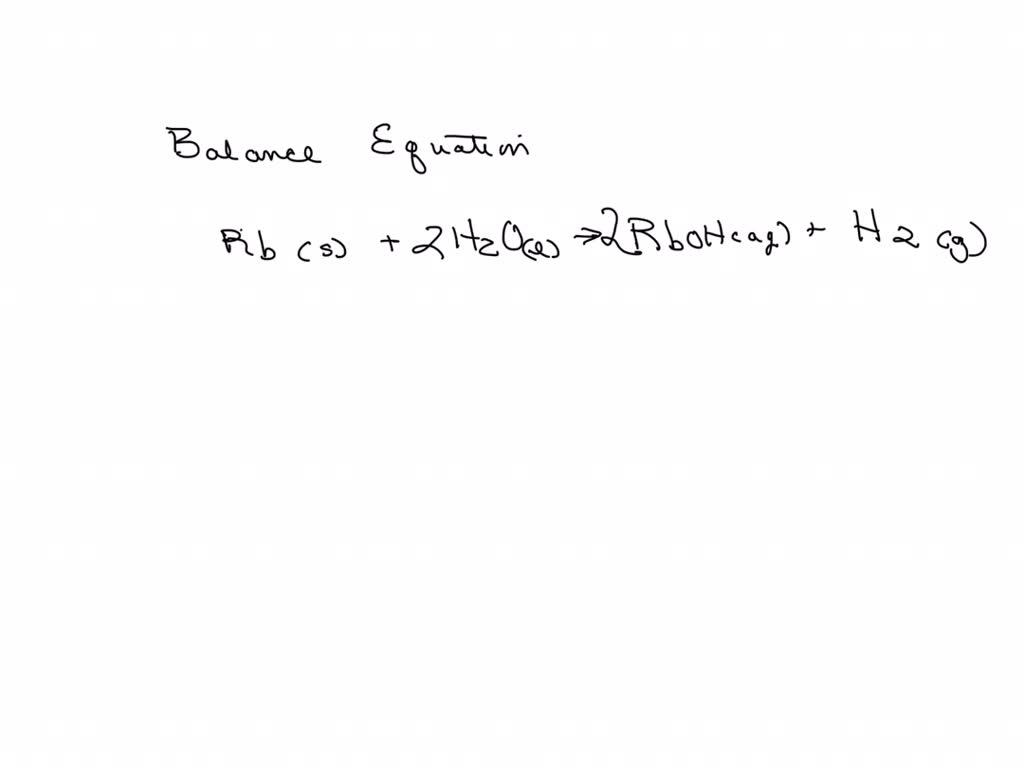 Balance Equation
Rb (s) + 2H2O(l) → 2RbOH(aq) + H2 (g)